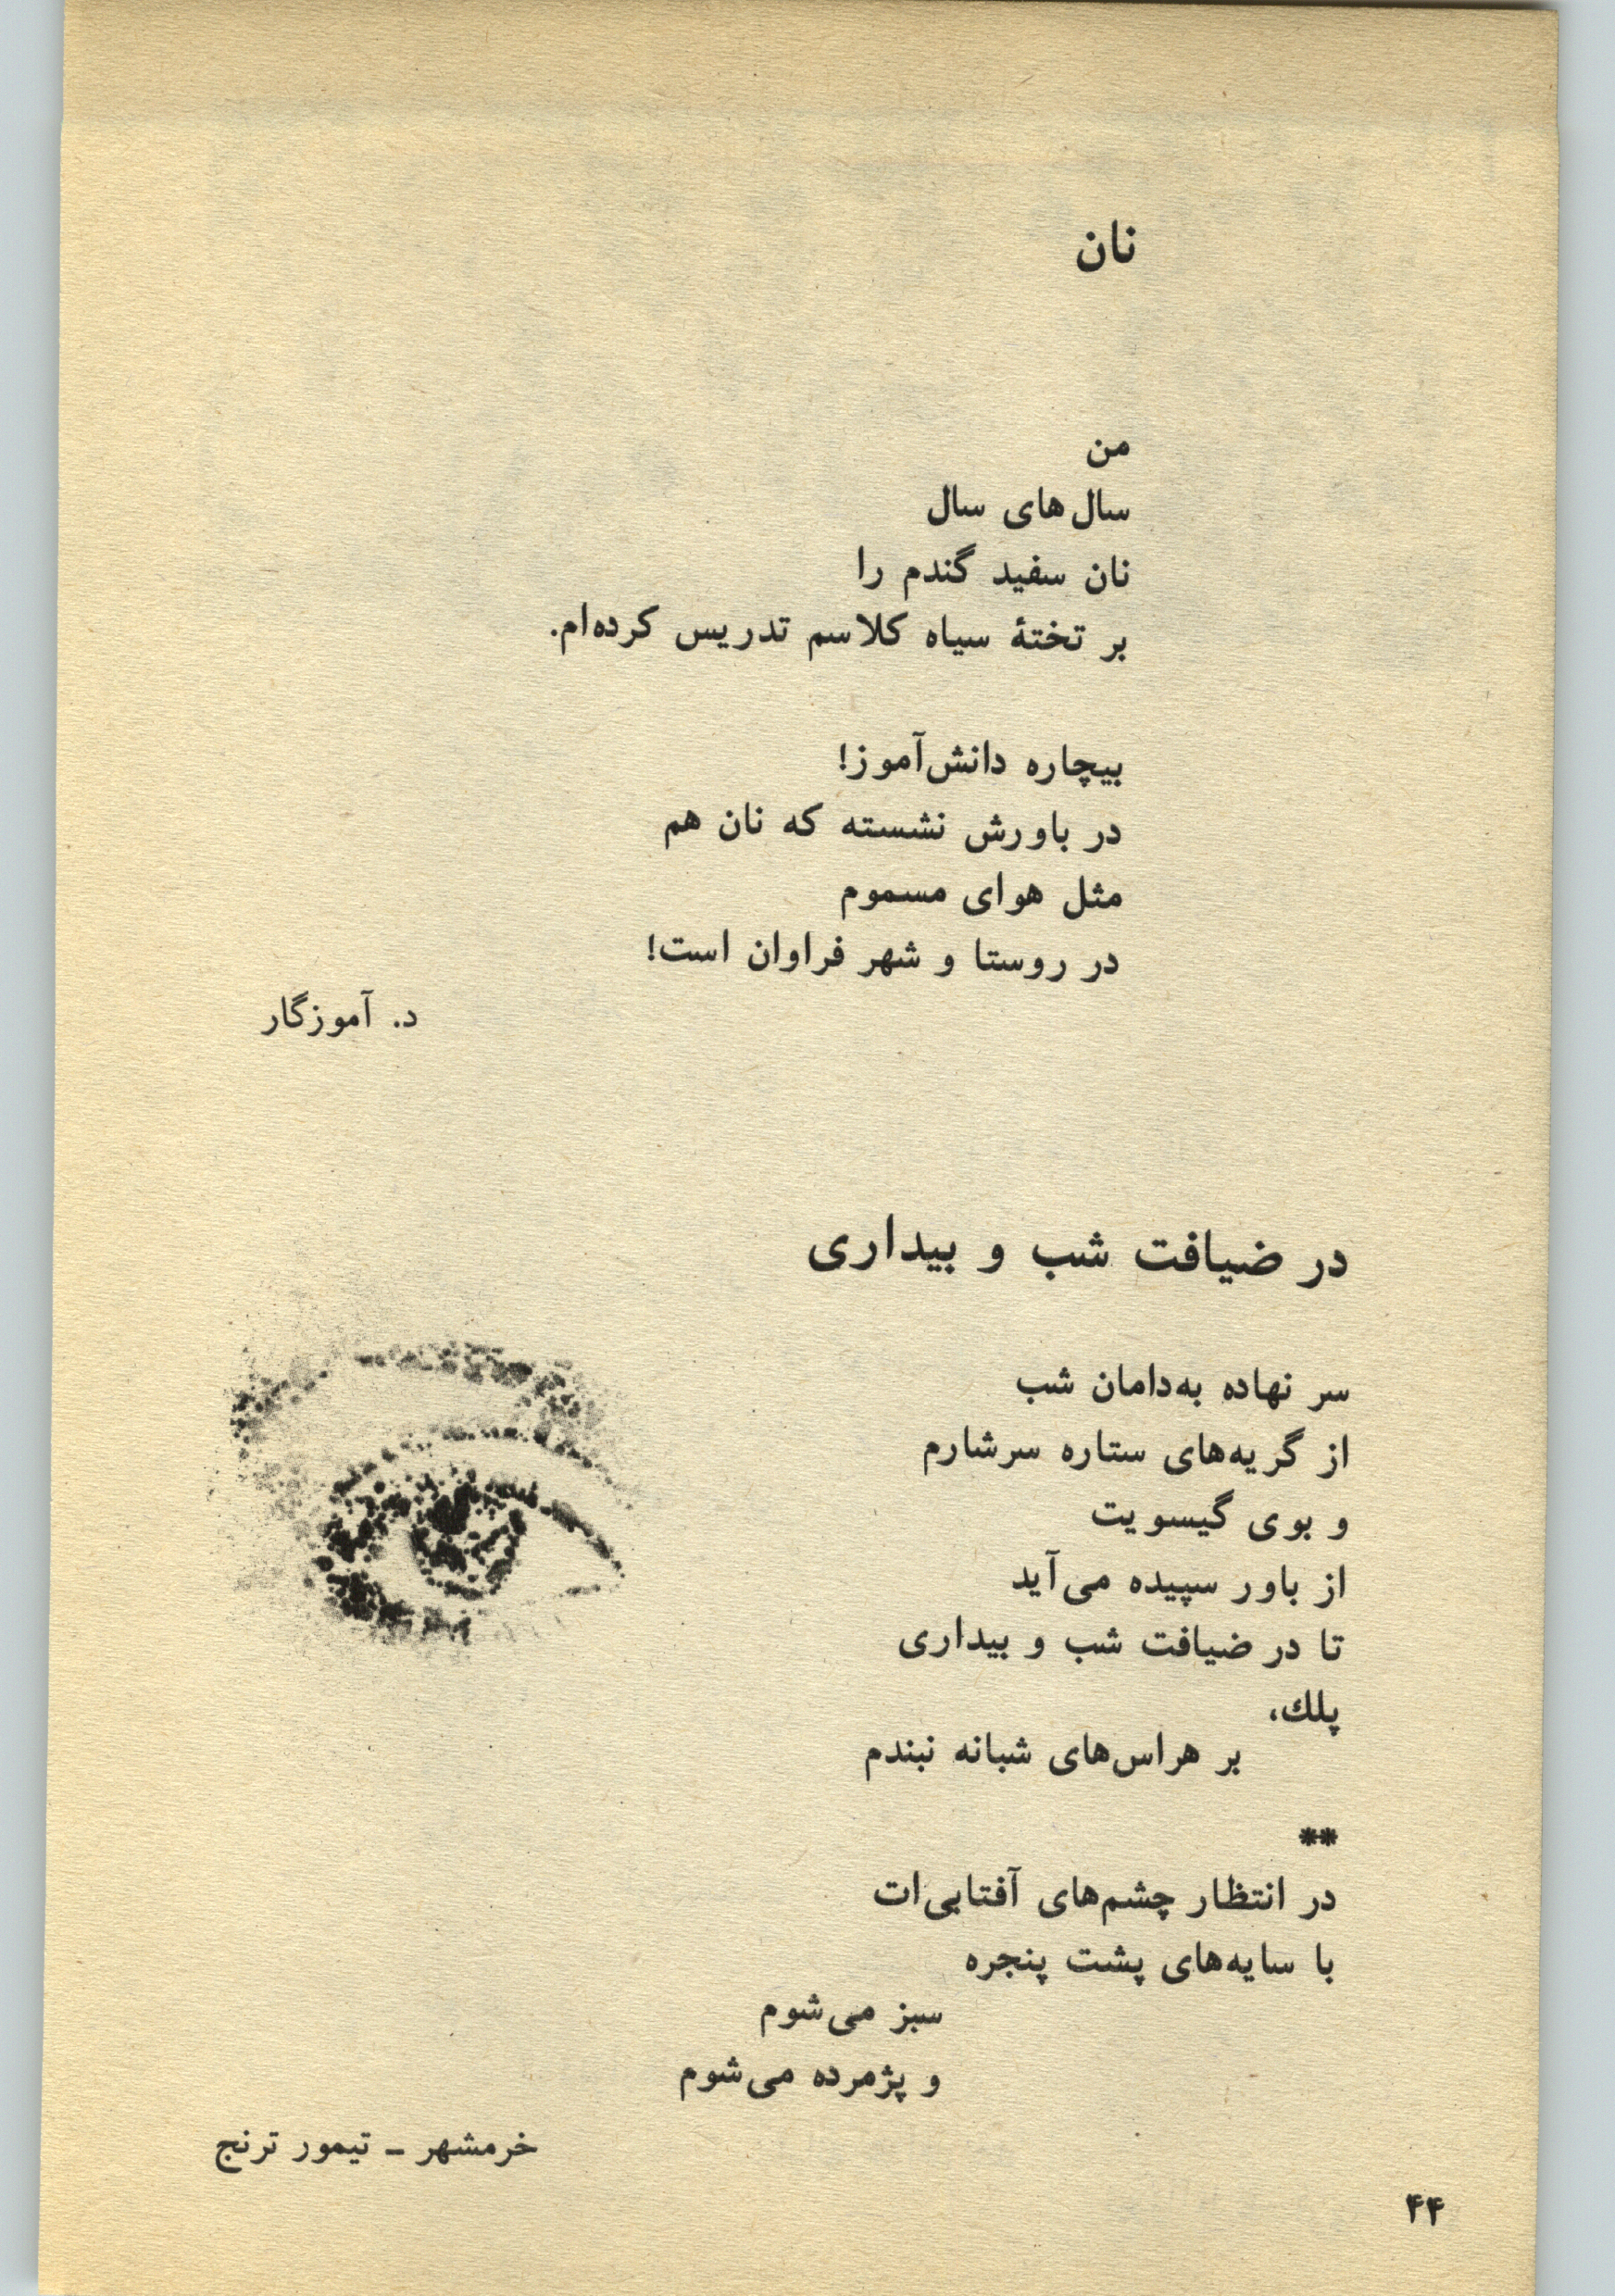 نان
من
سال‌های سال
نان سفید گندم را
بر تختهٔ سیاه کلاسم تدریس کرده‌ام.
بیچاره دانش‌آموز!
در باورش نشسته که نان هم
مثل هوای مسموم
در روستا و شهر فراوان است!
د. آموزگار
در ضیافت شب و بیداری
سر نهاده به‌دامان شب
از گریه‌های ستاره سرشارم
و بوی گیسویت
از باور سپیده می‌آید
تا در ضیافت شب و بیداری
پلك،
بر هراس‌های شبانه نبندم
**
در انتظار چشم‌های آفتابی‌ات
با سایه‌های پشت پنجره
سبز می‌شوم
و پژمرده می‌شوم
خرمشهر ــ تیمور ترنج
۴۴